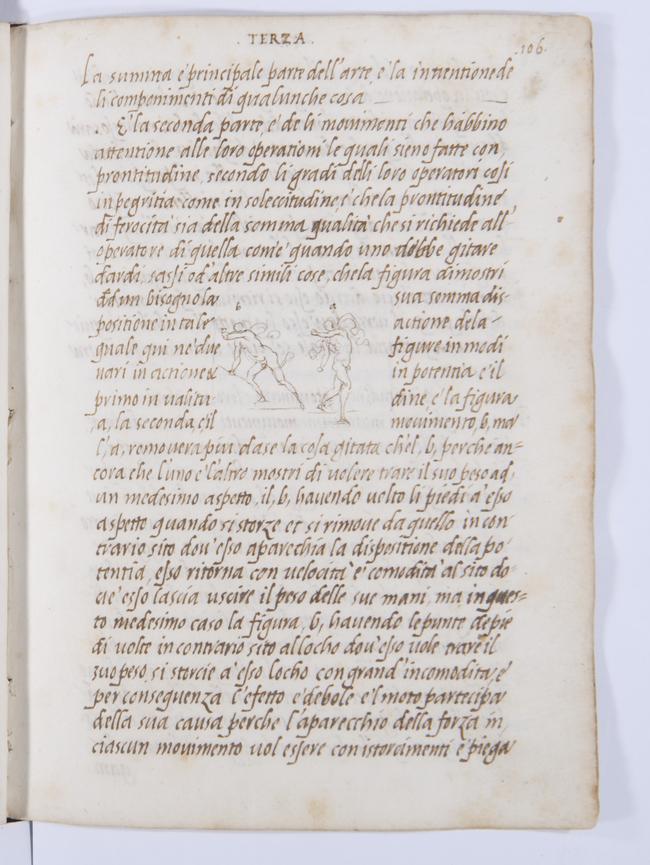 TERZA.
.106.
La summa e principale parte dell'arte, è la inventione de
li componimenti di qualunche cosa
E la seconda parte, è de li movimenti che habbino
attentione alle loro operationi le quali sieno fatte con
prontitudine, secondo li gradi delli loro operatori cosi
in pegritia come in soleccitudine, e che la prontitudine
di ferocità sia della somma qualità che si richiede all'
operatore di quella come quando uno debbe gitare
dardi, sassi od altre simili cose, che la figura dimostri
sua somma dis=
positione in tale actione de la
quale qui ne due figure in modi
vari in actione & in potentia e il
primo in valitu- dine, e la figura
,a, la seconda, e il movimento, b, ma
l', a, removera piu da se la cosa gitata che l', b, perche an=
cora che l'uno e l'altro mostri di volere trare il suo peso ad,
un medesimo aspetto, il, b, havendo volto li piedi a esso
aspetto quando si storze et si rimove da quello in con
trario sito dov'esso aparechia la dispositione della po
tentia, esso ritorna con velocità e comodità al sito do
ve esso lascia uscire il peso delle sue mani, ma in ques=
to medesimo caso la figura, b, havendo le punte de pie
di volte in contrario sito al locho dov'esso vole trare il
suo peso, si storcie a esso locho con grand'incomodita, e
per conseguenza l'efetto e debole e 'l moto partecipa
della sua causa perche l'aparecchio della forza in
ciascun movimento vol essere con istorcimenti e piega
b
a